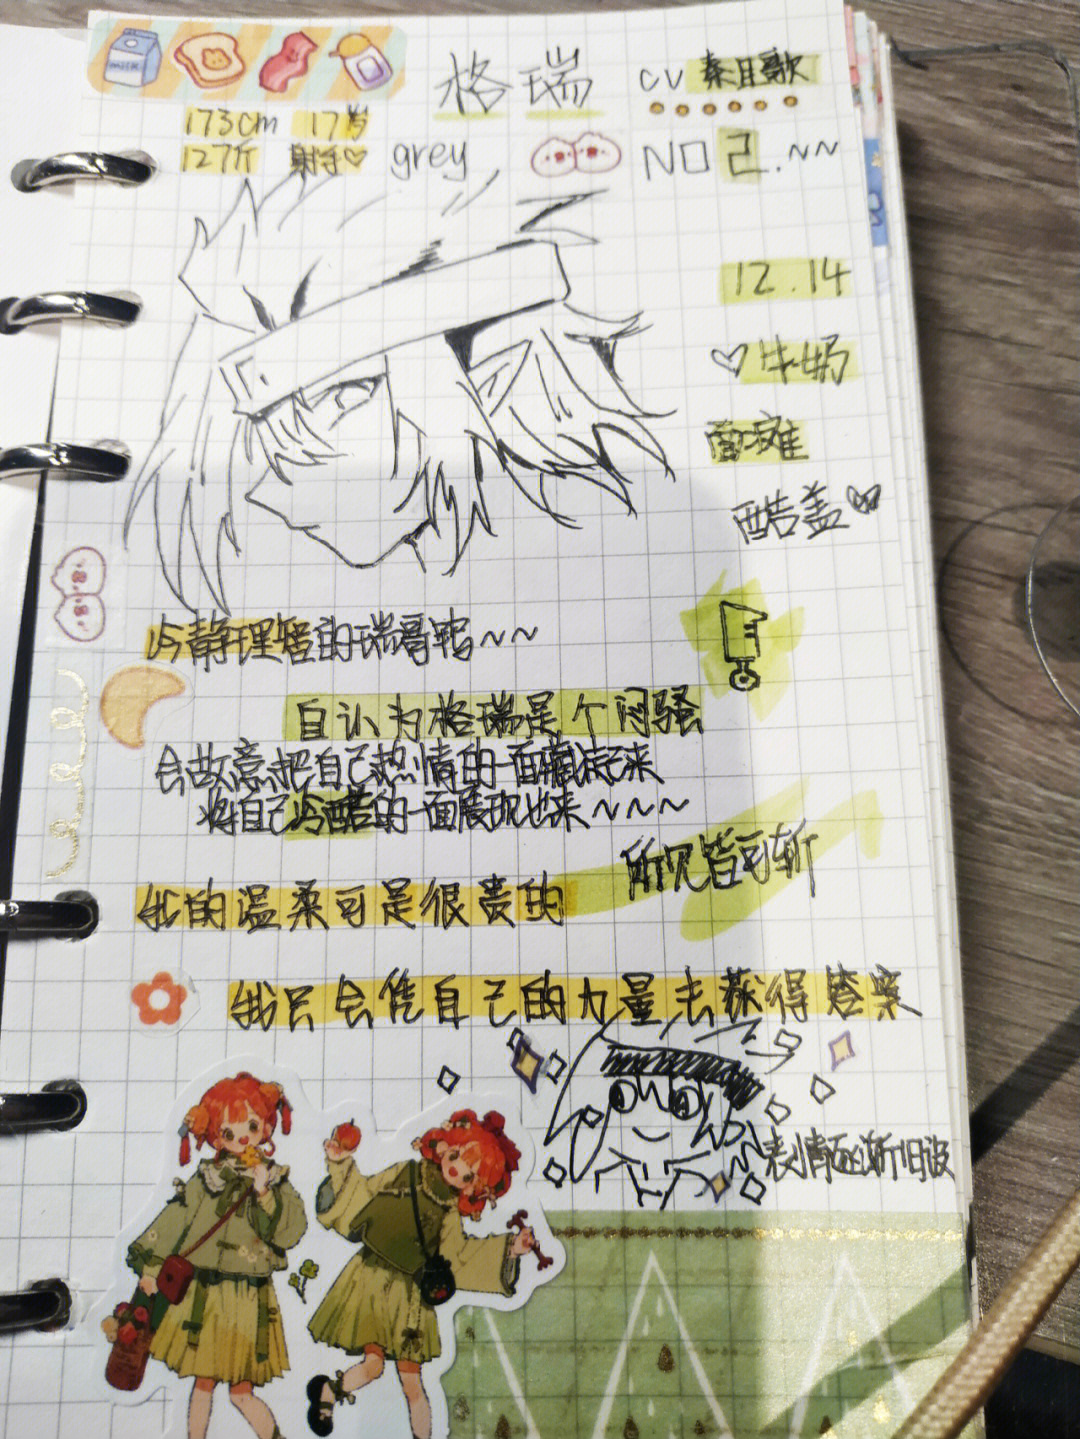 milk
格瑞
CV 秦且歌
173cm 17岁
127斤 射手♡ grey
NO 2.~~
12.14
♡牛奶
面瘫
酷盖
冷静理智的瑞哥鸭~~
自认为格瑞是个闷骚
会故意把自己热情的一面藏起来
将自己冷酷的一面展现出来~~~
所见皆可斩
我的温柔可是很贵的
我只会凭自己的力量去获得答案